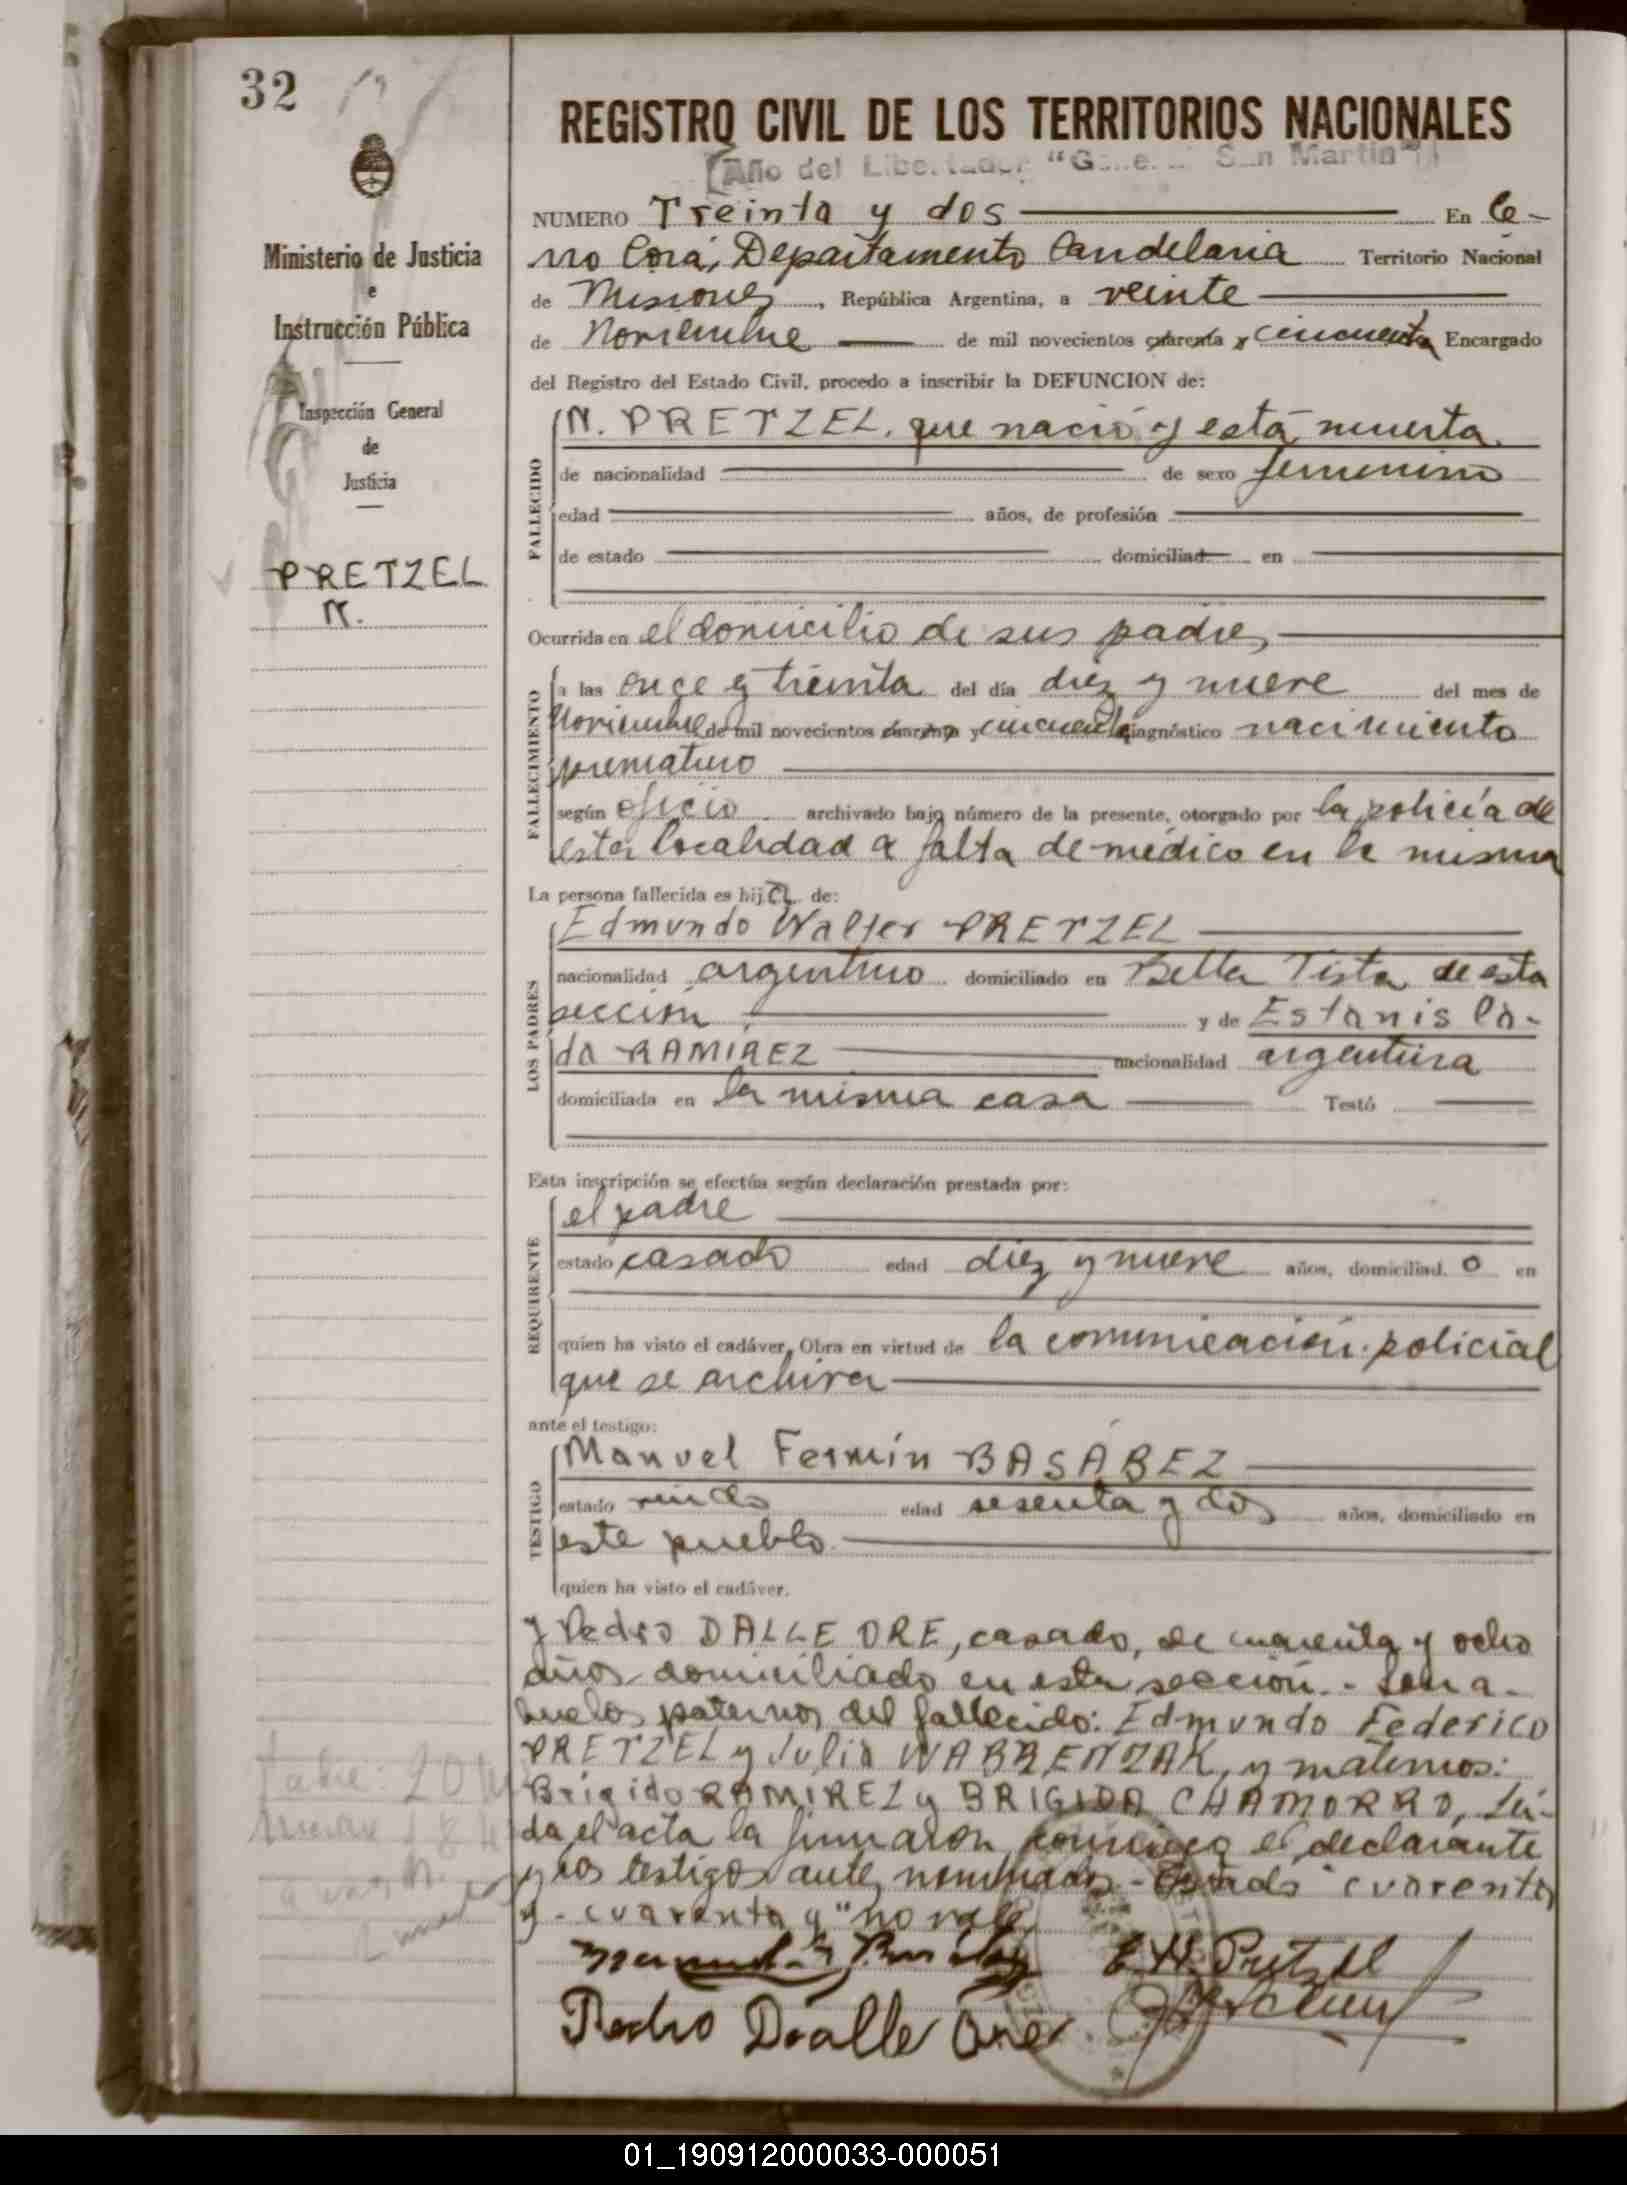 32
Ministerio de Justicia
e
Instrucción Pública
Inspección General
de
Justicia
PRETZEL
N.
REGISTRO CIVIL DE LOS TERRITORIOS NACIONALES
Año del Libertador "General San Martín"
NUMERO Treinta y dos En Ce-
rro Corá, Departamento Candelaria Territorio Nacional
de Misiones, República Argentina, a veinte
de Noviembre de mil novecientos cuarenta y cincuenta Encargado
del Registro del Estado Civil, procedo a inscribir la DEFUNCION de:
FALLECIDO
N. PRETZEL, que nació y está muerta
de nacionalidad de sexo femenino
edad años, de profesión
de estado domiciliad en
Ocurrida en el domicilio de sus padres
FALLECIMIENTO
a las once y treinta del día diez y nueve del mes de
Noviembre de mil novecientos cuarenta y cincuenta diagnóstico nacimiento
prematuro
según oficio archivado bajo número de la presente, otorgado por la policía de
esta localidad a falta de médico en la misma
La persona fallecida es hija de:
LOS PADRES
Edmundo Walter PRETZEL
nacionalidad argentino domiciliado en Bella Vista de esta
sección y de Estanisla-
da RAMIREZ nacionalidad argentina
domiciliada en la misma casa Testó
Esta inscripción se efectúa según declaración prestada por:
REQUIRENTE
el padre
estado casado edad diez y nueve años, domiciliad o en
quien ha visto el cadáver. Obra en virtud de la comunicación policial
que se archiva
ante el testigo:
TESTIGO
Manuel Fermín BASÁBEZ
estado viudo edad sesenta y dos años, domiciliado en
este pueblo
quien ha visto el cadáver.
y Pedro DALLE ORE, casado, de cuarenta y ocho
años domiciliado en esta sección.- Son a-
buelos paternos del fallecido: Edmundo Federico
PRETZEL y Julia WABRENZAK, y maternos:
Brigido RAMIREZ y BRIGIDA CHAMORRO, Leí-
da el acta la firmaron conmigo el declarante
y los testigos ante nominados.- cuarenta
y - cuarenta y "no vale
E. W. Pretzel
Pedro Dalle Ore
01_190912000033-000051